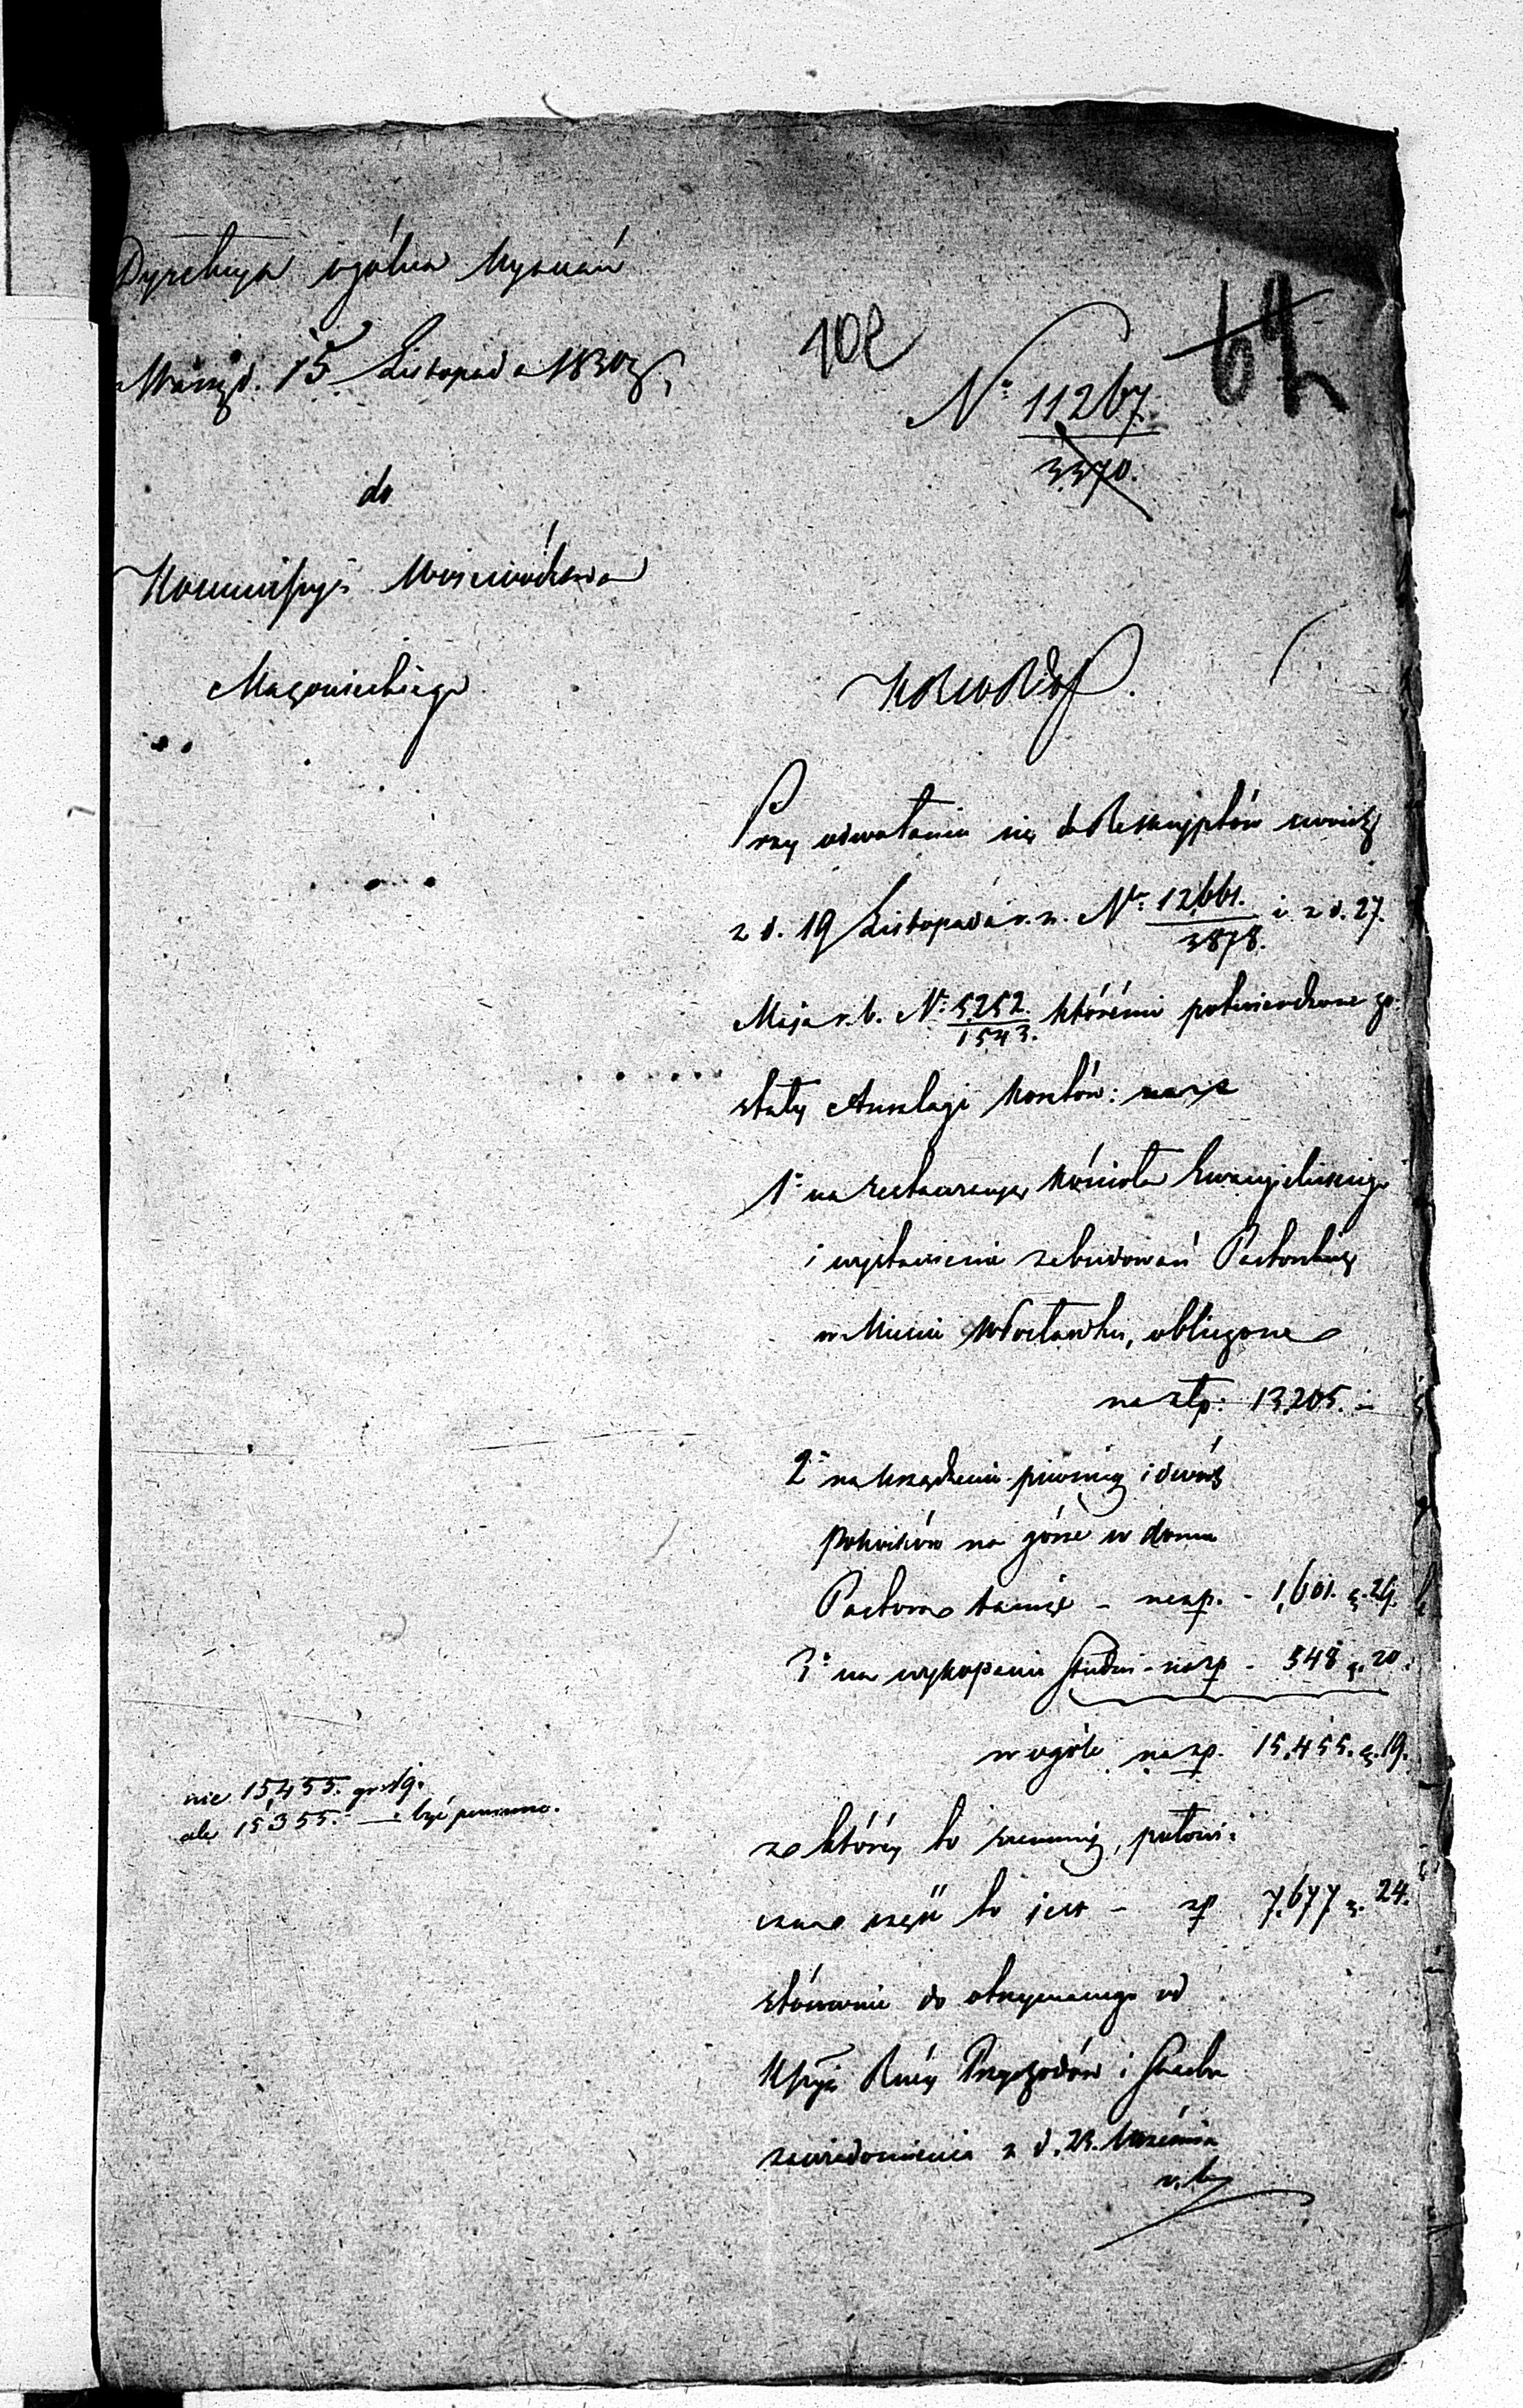 Dyrekcya ogólna Wyznań
Warsz. d. 15 Listopada 1830 r.
do
Kommissyi Województwa
Mazowieckiego
102
62
Nº 11267
3370.
KRWRiOP.
Przy odwołaniu się do Reskryptów swoich
z d. 19 Listopada r. z. Nr 12661. i z d. 27.
3878.
Maja r. b. Nr 5252. któremi potwierdzone zo-
1543.
stały Anszlagi kosztów:
1º na restauracyą kościoła Ewangelickiego
i wystawienie zabudowań Pastorskich
w Mieście Włocławku, obliczone
na złp: 13,205. –
2º na urządzenie piwnicy i dwóch
pokoików na górze w domu
Pastora tamże – na zp. – 1,601. g. 29.
3º na wykopanie studni – na zp – 548 g. 20.
w ogóle na zp. 15,455. g. 19.
nie 15,455. gr. 19.
ale 15355. — być powinno.
z której to summy, połowi-
czna część to jest – zp 7,677 g. 24.
stósownie do otrzymanego od
K. Rząd. Przychodów i Skarbu
zawiadomienia z d. 23. Września
r. b.